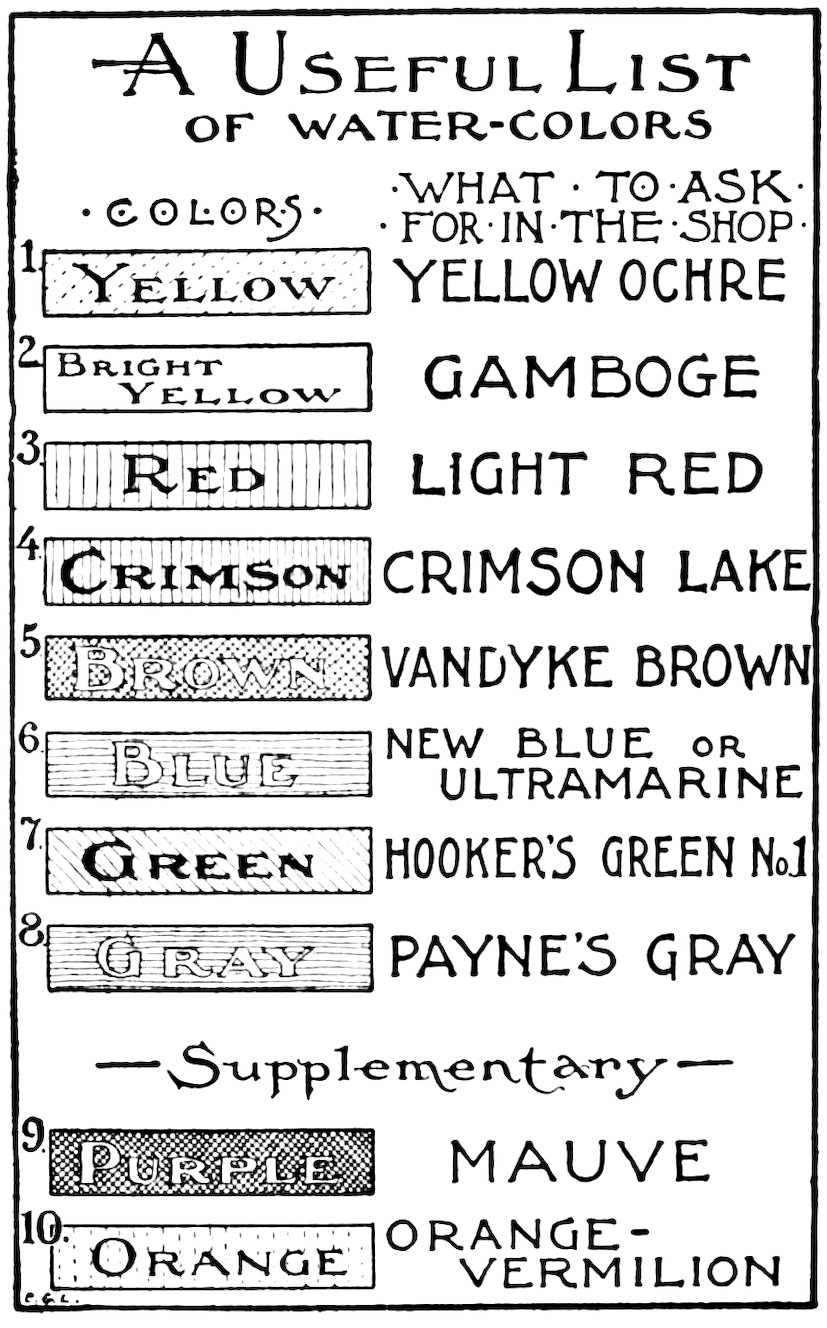 A USEFUL LIST
OF WATER-COLORS
·COLORS·
·WHAT·TO·ASK·
·FOR·IN·THE·SHOP·
1. YELLOW YELLOW OCHRE
2. BRIGHT
YELLOW
GAMBOGE
3. RED LIGHT RED
4. CRIMSON CRIMSON LAKE
5. BROWN VANDYKE BROWN
6. BLUE NEW BLUE OR
ULTRAMARINE
7. GREEN HOOKER'S GREEN No.1
8. GRAY PAYNE'S GRAY
—Supplementary—
9. PURPLE MAUVE
10. ORANGE ORANGE-
VERMILION